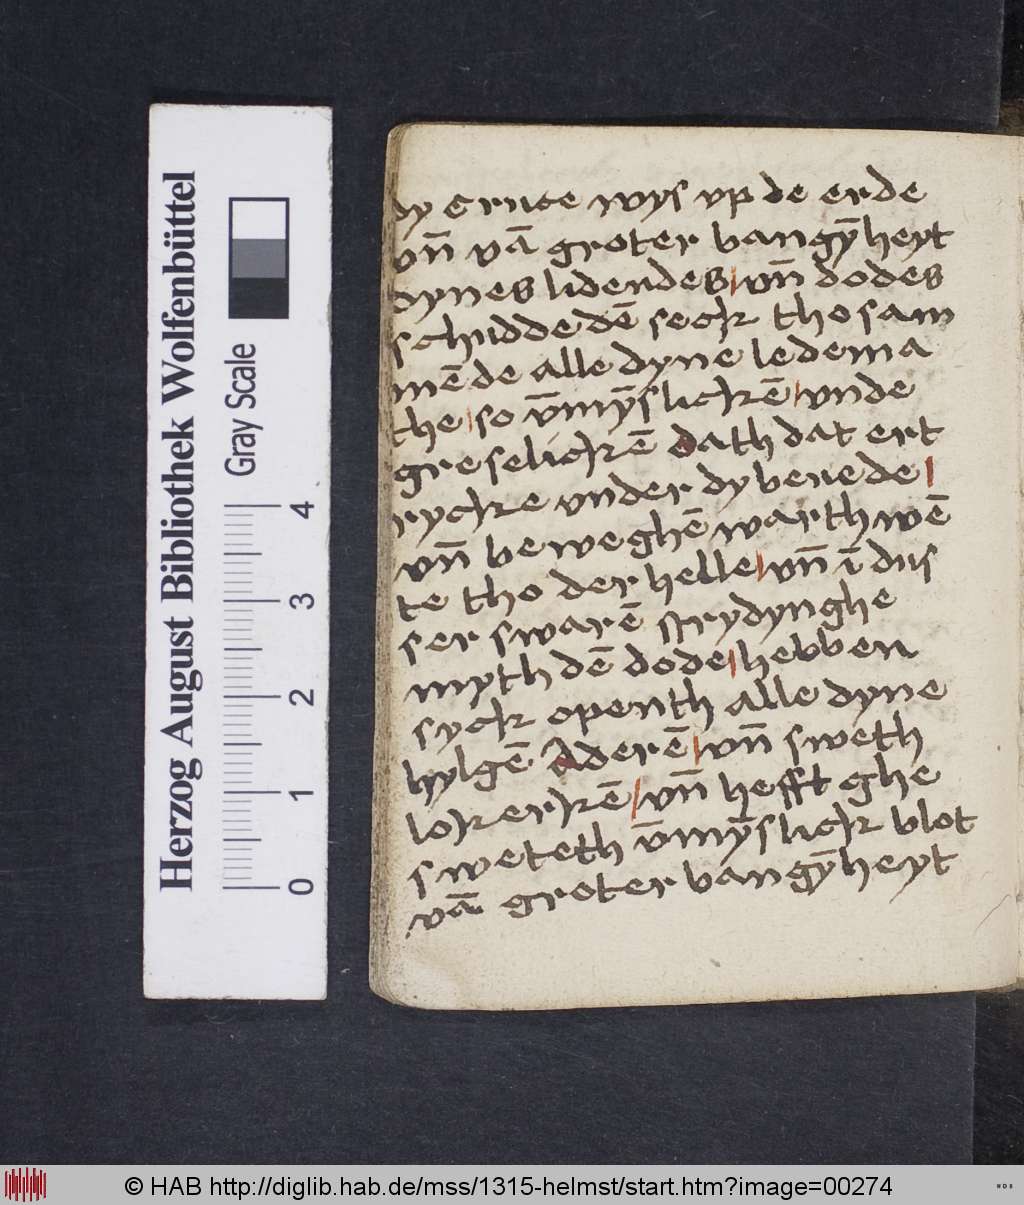 Herzog August Bibliothek Wolfenbüttel
Gray Scale
0 1 2 3 4
dy Cruce wys vp de erde
vn̄ vā groter bangȳheyt
dynes lidendes/vn̄ dodes
schudde dē seck thosam
mēde alle dyne ledema
the/so v̄mȳslickē/vnde
greselickē dath dat ert
rycke vnder dy beuede/
vn̄ beweghē warth wē
te tho der helle/vn̄ ī dus
ser swarē strydynghe
myth dē dode/hebben
syck openth alle dyne
hylgē Aderē/vn̄ sweth
lokerkē/vn̄ hefft ghe
sweteth v̄mȳslick blot
vā groter bangȳheyt
© HAB http://diglib.hab.de/mss/1315-helmst/start.htm?image=00274